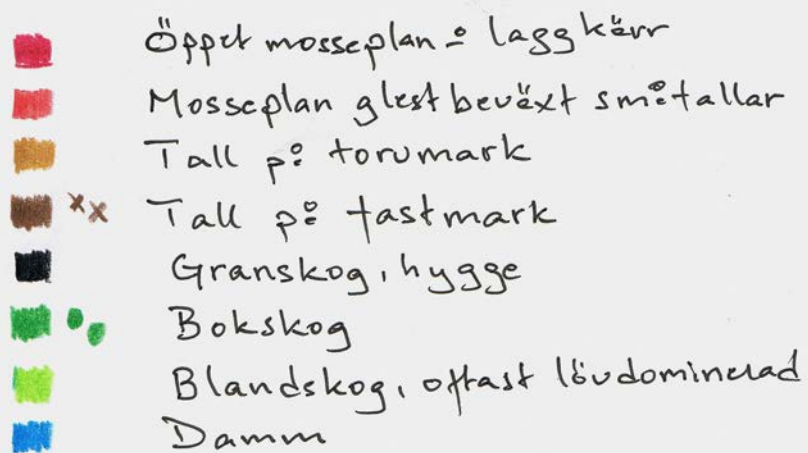 Öppet mosseplan å laggkärr
Mosseplan glest beväxt småtallar
Tall på torvmark
Tall på fastmark
Granskog, hygge
Bokskog
Blandskog, oftast lövdominerad
Damm